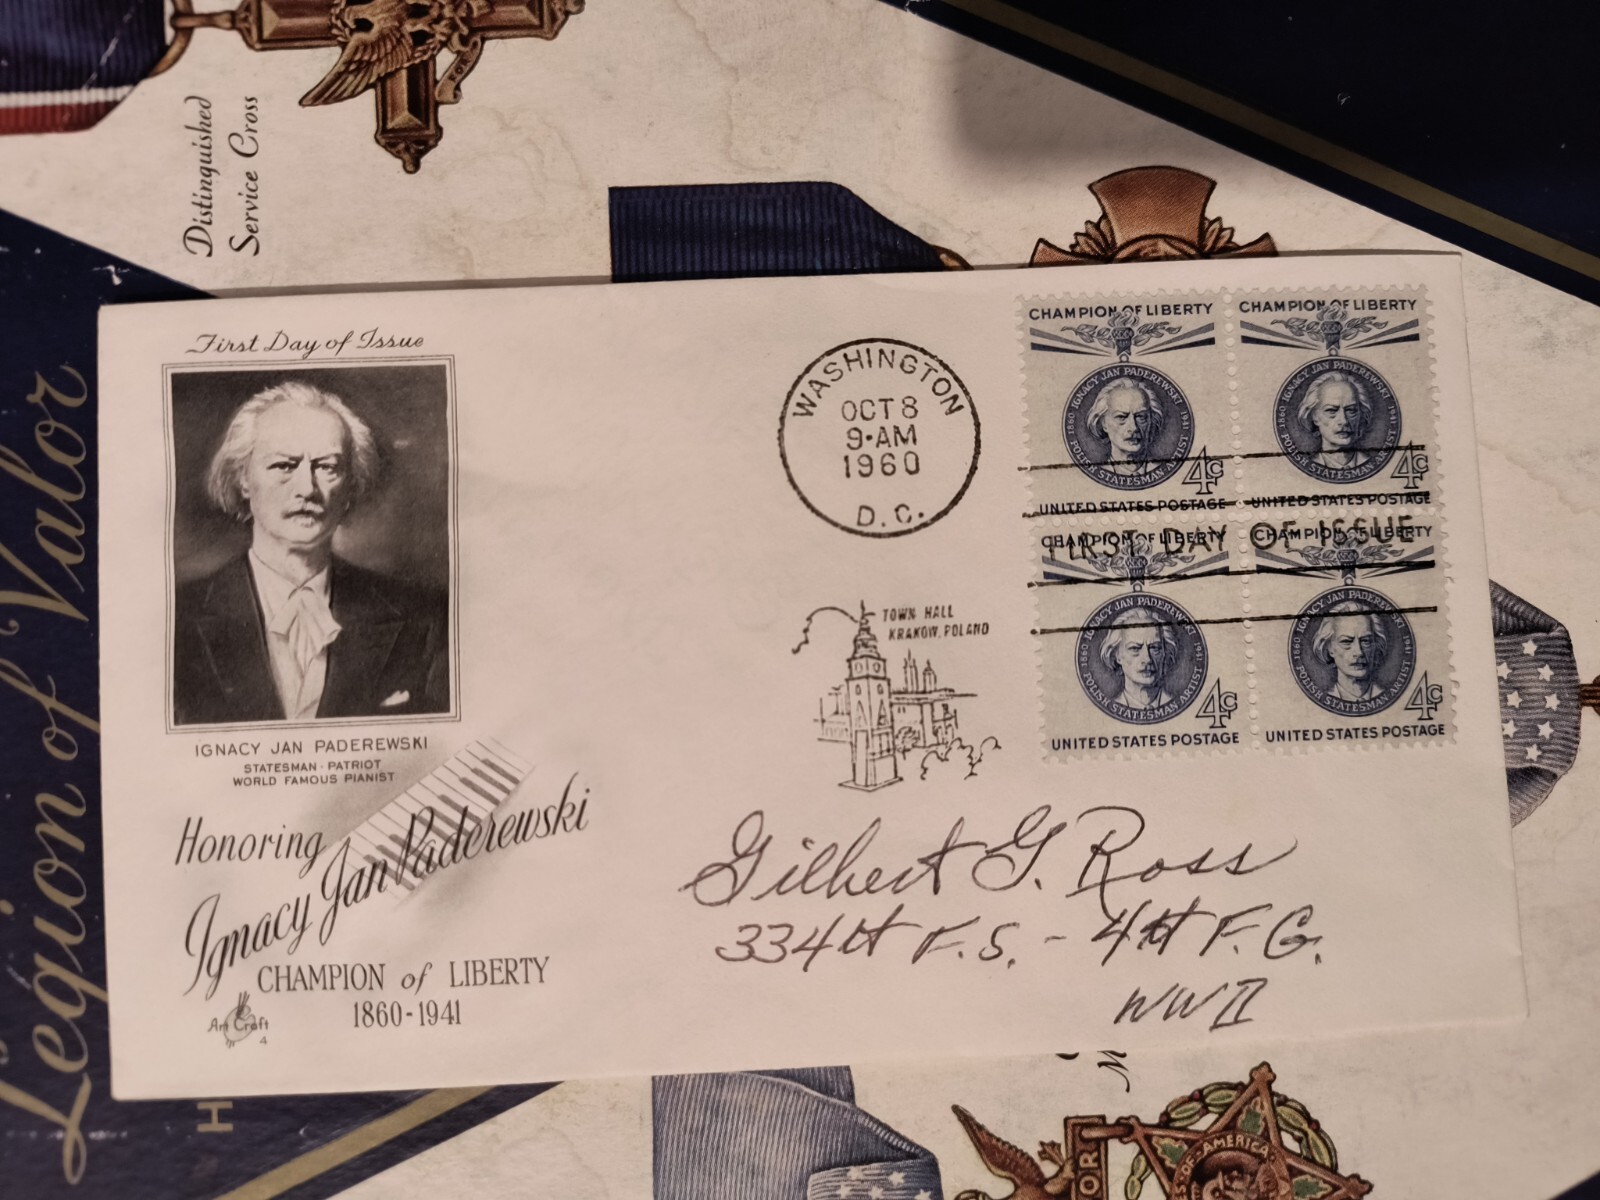 Distinguished
Service Cross
FOR
Legion of Valor
H
First Day of Issue
IGNACY JAN PADEREWSKI
STATESMAN · PATRIOT
WORLD FAMOUS PIANIST
Honoring
Ignacy Jan Paderewski
CHAMPION of LIBERTY
1860-1941
Art Craft
4
WASHINGTON
OCT 8
9·AM
1960
D.C.
TOWN HALL
KRAKOW, POLAND
CHAMPION OF LIBERTY
1860 IGNACY JAN PADEREWSKI 1941
POLISH STATESMAN ARTIST
4¢
UNITED STATES POSTAGE
CHAMPION OF LIBERTY
1860 IGNACY JAN PADEREWSKI 1941
POLISH STATESMAN ARTIST
4¢
UNITED STATES POSTAGE
FIRST DAY OF ISSUE
CHAMPION OF LIBERTY
1860 IGNACY JAN PADEREWSKI 1941
POLISH STATESMAN ARTIST
4¢
UNITED STATES POSTAGE
CHAMPION OF LIBERTY
1860 IGNACY JAN PADEREWSKI 1941
POLISH STATESMAN ARTIST
4¢
UNITED STATES POSTAGE
Gilbert G. Ross
334th F.S. - 4th F.G.
WWII
OR
OF AMERICA